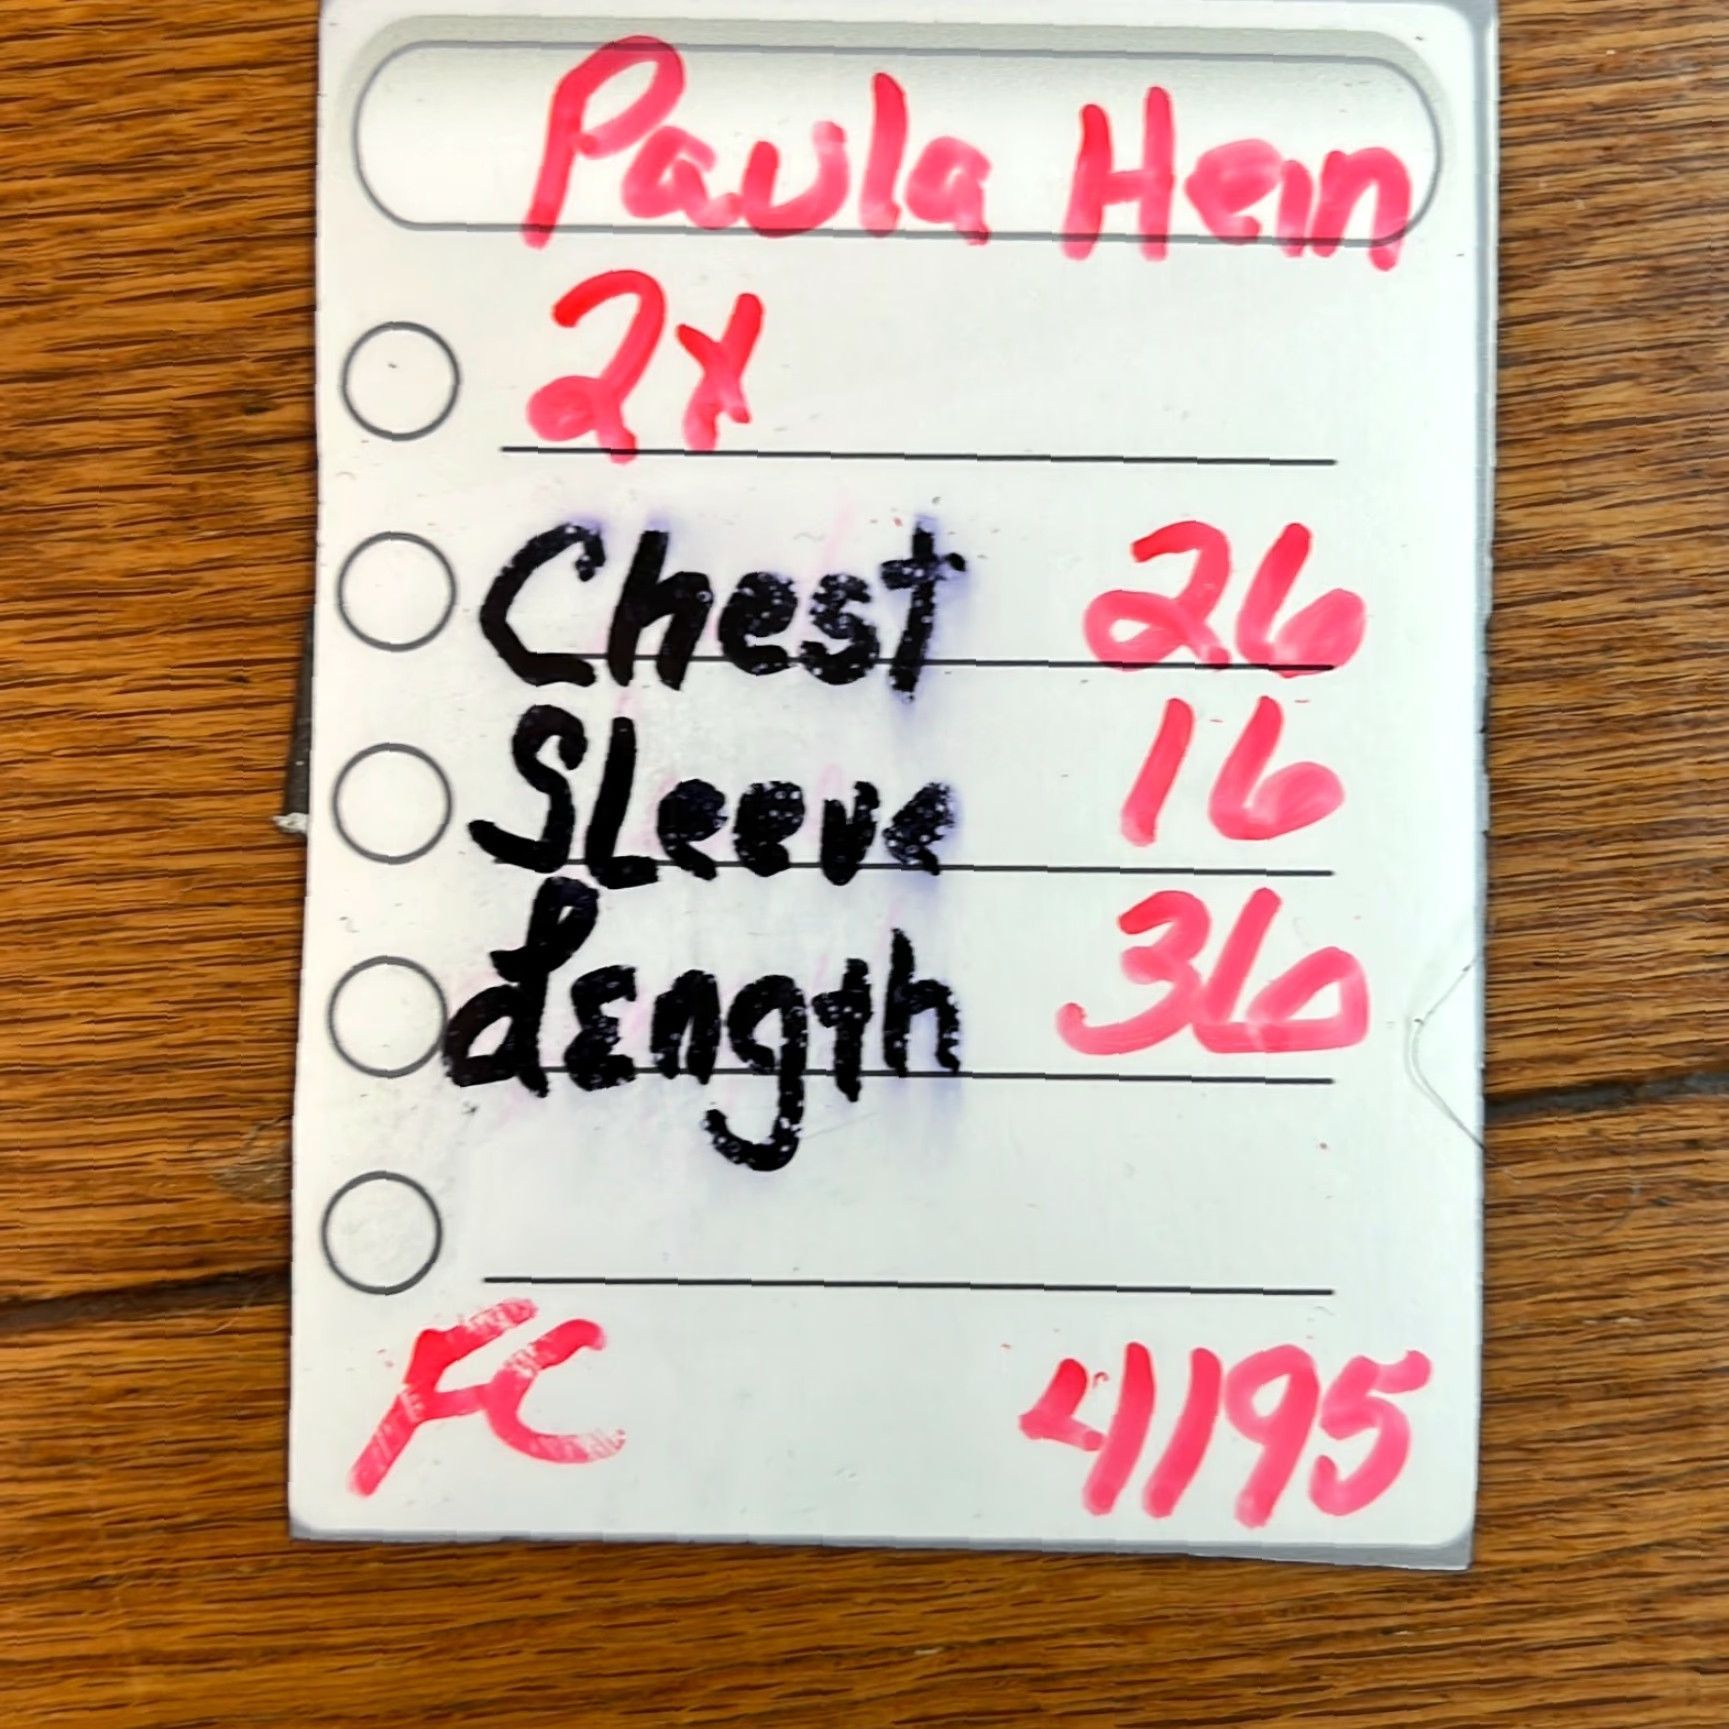 Paula Hein
2x
Chest 26
SLeeve 16
Length 36
FC 4195